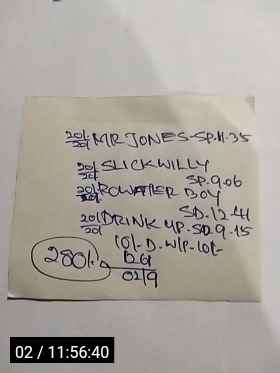 20/-/20 MR JONES-SP.11.35
20/-/20 SLICKWILLY
SP.9.06
20/-/20 BOY
SD.12.41
20/-/20 DRINK UP-SD.9.15
10/-D.W/P-10/-
280/-
02/9
02 / 11:56:40